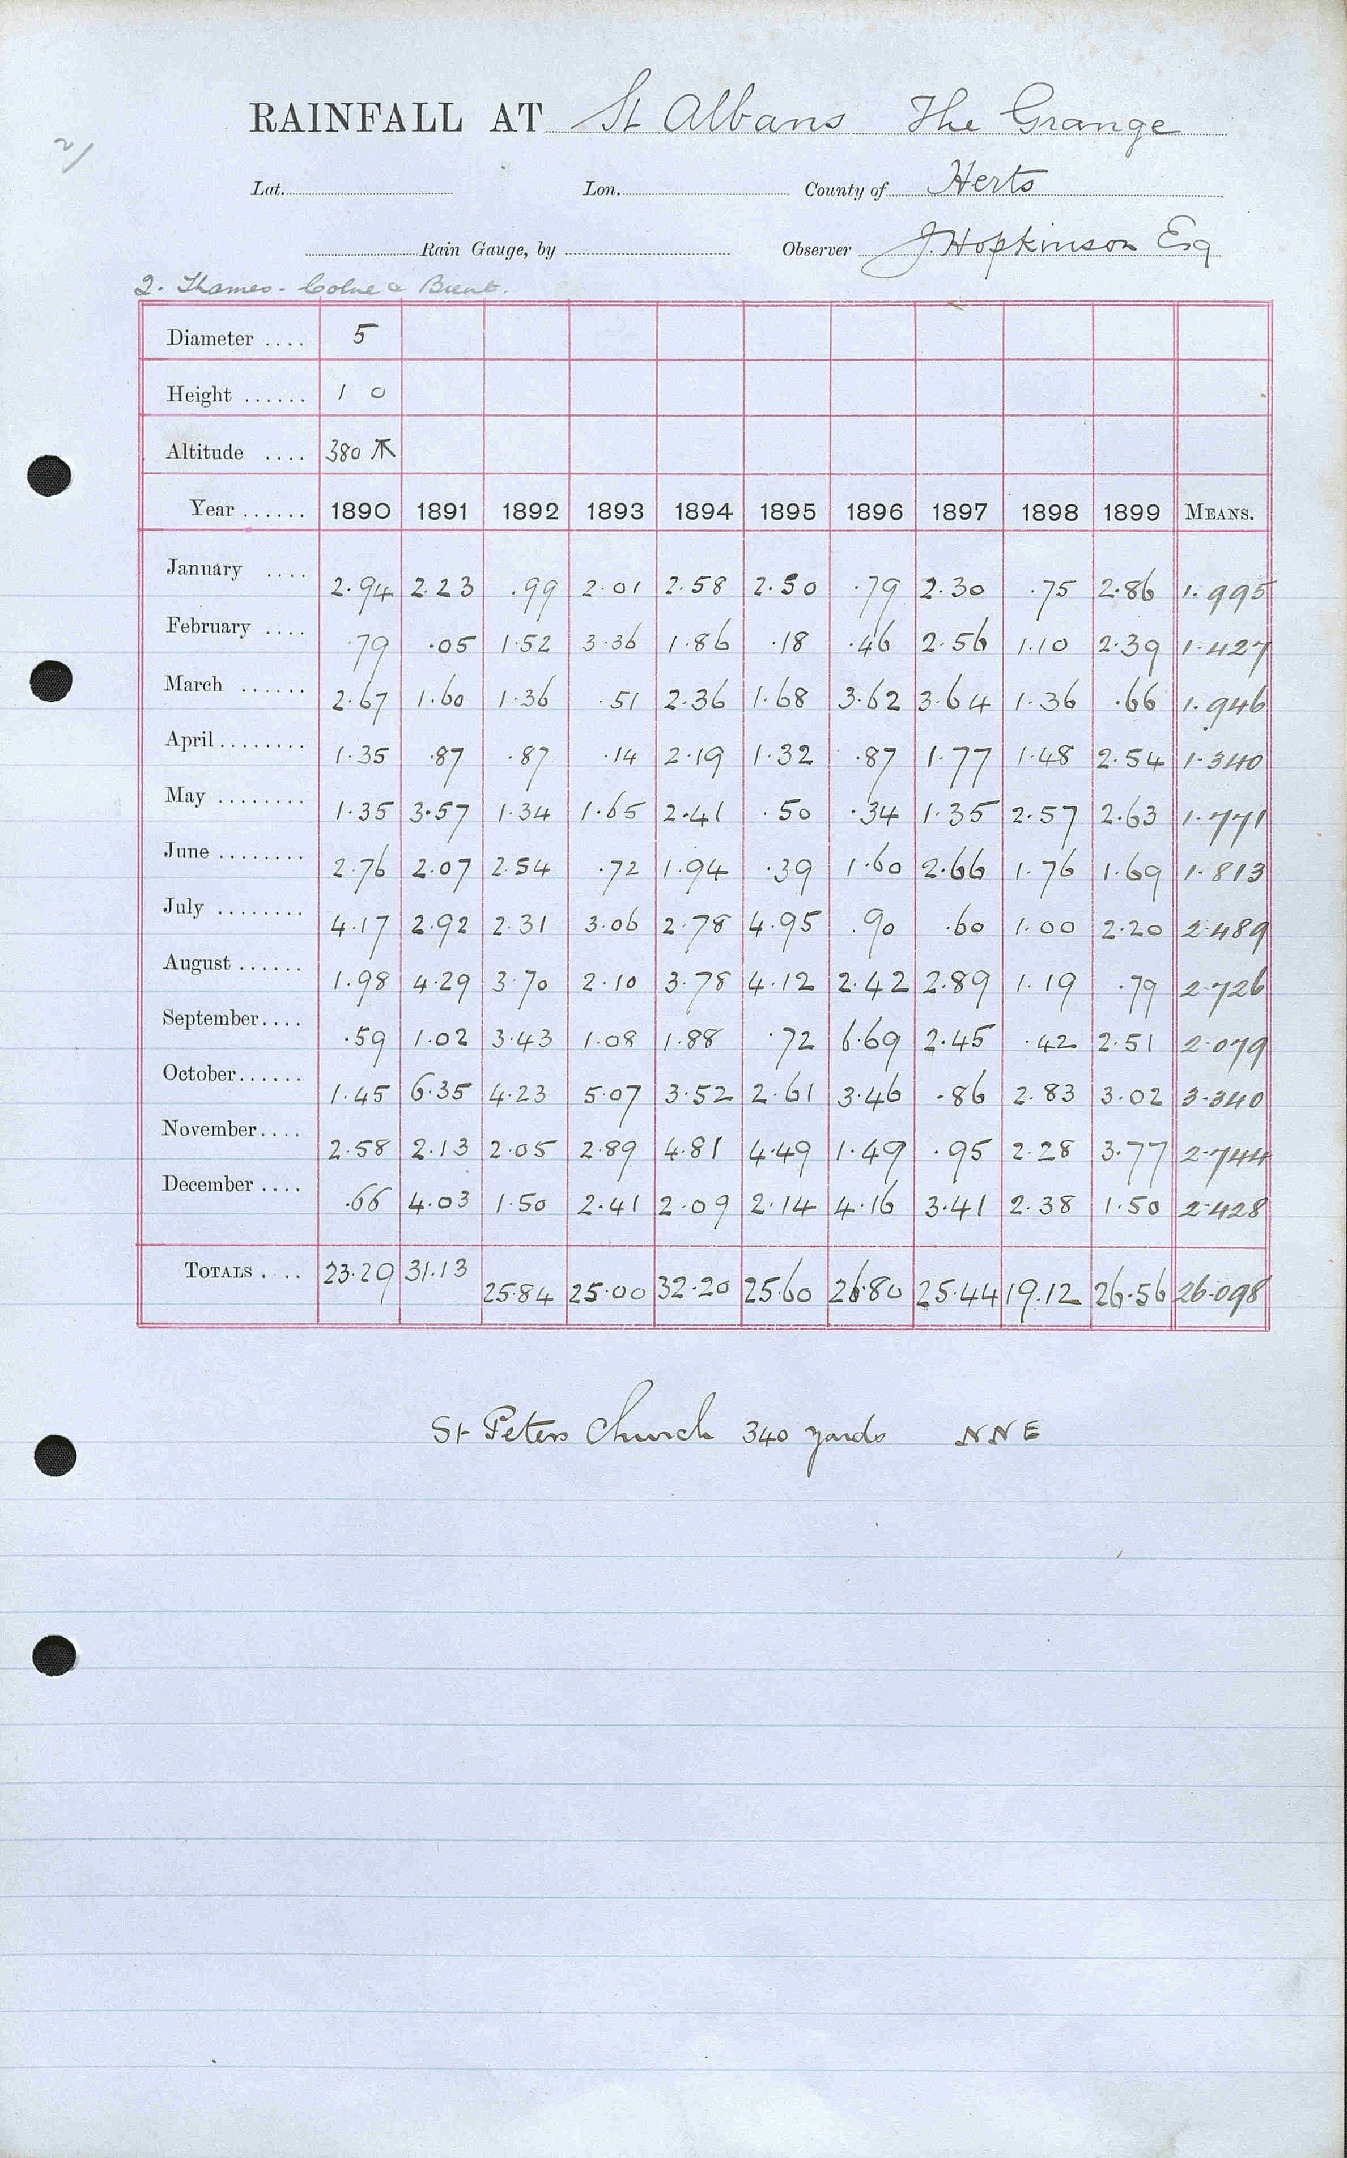 RAINFALL AT St Albans The Grange
2/
Lat. Lon. County of Herts
Rain Gauge, by Observer J. Hopkinson Esq
2. Thames. Colne & Brent.
Diameter .... 5
Height ...... 1 0
Altitude .... 380
Year ...... 1890 1891 1892 1893 1894 1895 1896 1897 1898 1899 MEANS.
January .... 2.94 2.23 .99 2.01 2.58 2.50 .79 2.30 .75 2.86 1.995
February .... .79 .05 1.52 3.36 1.86 .18 .46 2.56 1.10 2.39 1.427
March ...... 2.67 1.60 1.36 .51 2.36 1.68 3.62 3.64 1.36 .66 1.946
April ........ 1.35 .87 .87 .14 2.19 1.32 .87 1.77 1.48 2.54 1.340
May ........ 1.35 3.57 1.34 1.65 2.41 .50 .34 1.35 2.57 2.63 1.771
June ........ 2.76 2.07 2.54 .72 1.94 .39 1.60 2.66 1.76 1.69 1.813
July ........ 4.17 2.92 2.31 3.06 2.78 4.95 .90 .60 1.00 2.20 2.489
August ...... 1.98 4.29 3.70 2.10 3.78 4.12 2.42 2.89 1.19 .79 2.726
September.... .59 1.02 3.43 1.08 1.88 .72 6.69 2.45 .42 2.51 2.079
October...... 1.45 6.35 4.23 5.07 3.52 2.61 3.46 .86 2.83 3.02 3.340
November.... 2.58 2.13 2.05 2.89 4.81 4.49 1.49 .95 2.28 3.77 2.744
December .... .66 4.03 1.50 2.41 2.09 2.14 4.16 3.41 2.38 1.50 2.428
TOTALS .... 23.29 31.13 25.84 25.00 32.20 25.60 26.80 25.44 19.12 26.56 26.098
St Peters Church 340 yards NNE